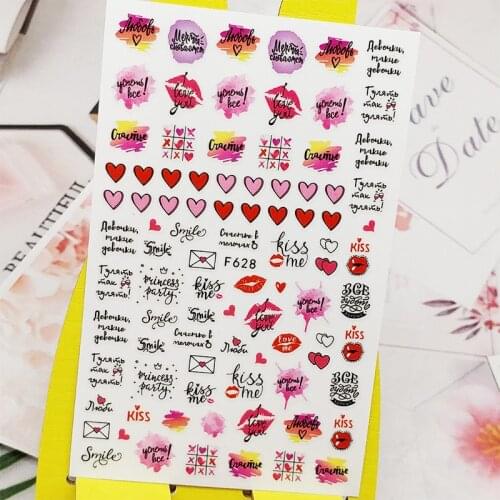 Любовь
Мечты
сбываются
Любовь
Мечты
сбываются
Любовь
Девочки,
такие
девочки
успеть
все!
I love
you
успеть
все!
I love
you
успеть
все!
Гулять
так
гулять!
Счастье
Счастье
Счастье
Девочки,
такие
девочки
Гулять
так
гулять!
Девочки,
такие
девочки
Smile
Smile
Счастье в
мелочах
F628
kiss
me
KISS
Гулять
так
гулять!
princess
party
kiss
me
I love
you
успеть
все!
ВСЕ
будет
Девочки,
такие
девочки
Smile
Smile
Счастье в
мелочах
Люби
Love
me
KISS
Гулять
так
гулять!
princess
party
kiss
me
kiss
me
успеть
все!
ВСЕ
будет
Люби
KISS
I love
you
Любовь
KISS
Smile
успеть
все!
Счастье
Счастье
BEAUTIFUL
Save
the
Date